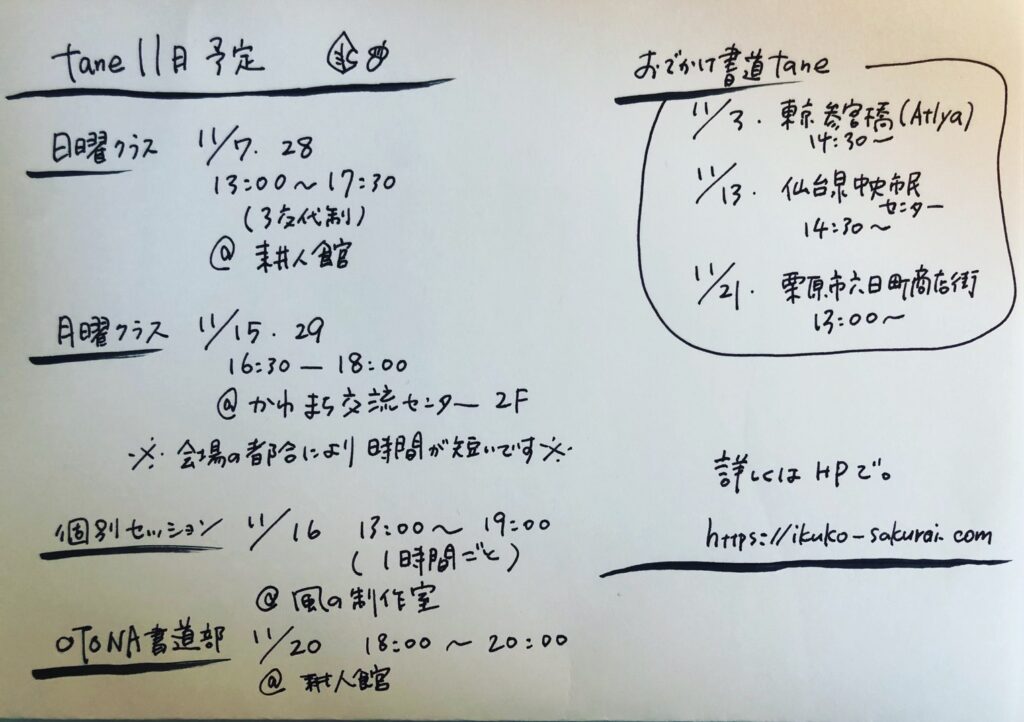 tane 11月予定
日曜クラス 11/7. 28
13:00〜17:30
(3交代制)
@ 耕人館
月曜クラス 11/15. 29
16:30 — 18:00
@ かわまち交流センター 2F
※ 会場の都合により時間が短いです※
個別セッション 11/16 13:00〜19:00
(1時間ごと)
@ 風の制作室
OTONA書道部 11/20 18:00〜20:00
@ 耕人館
おでかけ書道tane
11/3. 東京参宮橋(Atlya)
14:30〜
11/13. 仙台泉中央市民
センター
14:30〜
11/21. 栗原市六日町商店街
13:00〜
詳しくはHPで。
https://ikuko-sakurai.com